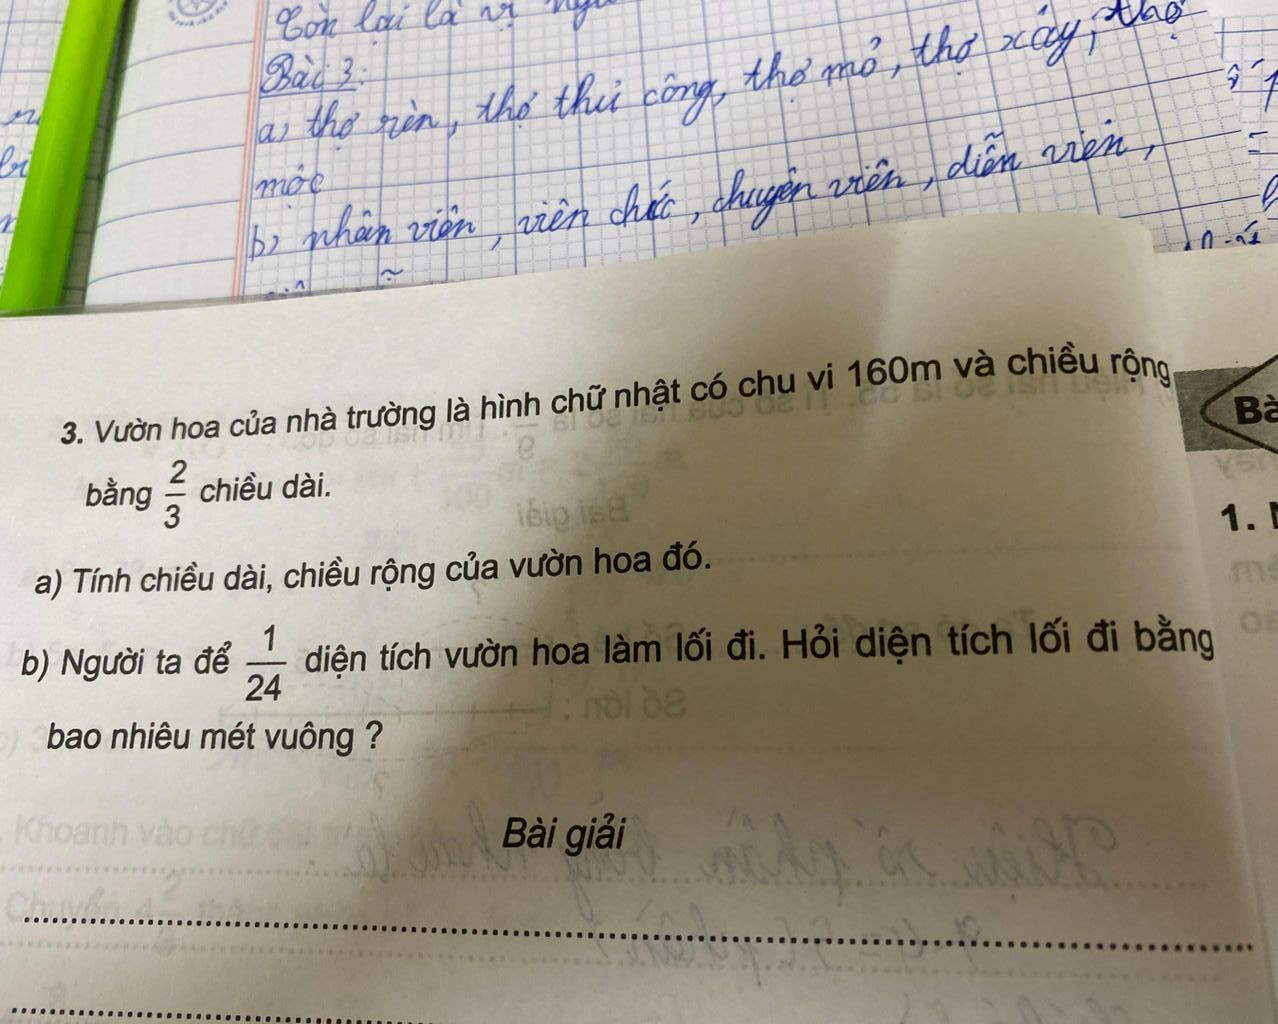 Còn lại là
Bài 3:
a) thợ rèn, thợ thủ công, thợ mỏ, thợ xây, thợ
mộc
b) nhân viên, viên chức, chuyên viên, diễn viên,
3. Vườn hoa của nhà trường là hình chữ nhật có chu vi 160m và chiều rộng
bằng 2/3 chiều dài.
a) Tính chiều dài, chiều rộng của vườn hoa đó.
b) Người ta để 1/24 diện tích vườn hoa làm lối đi. Hỏi diện tích lối đi bằng
bao nhiêu mét vuông ?
Bài giải
Bà
1.